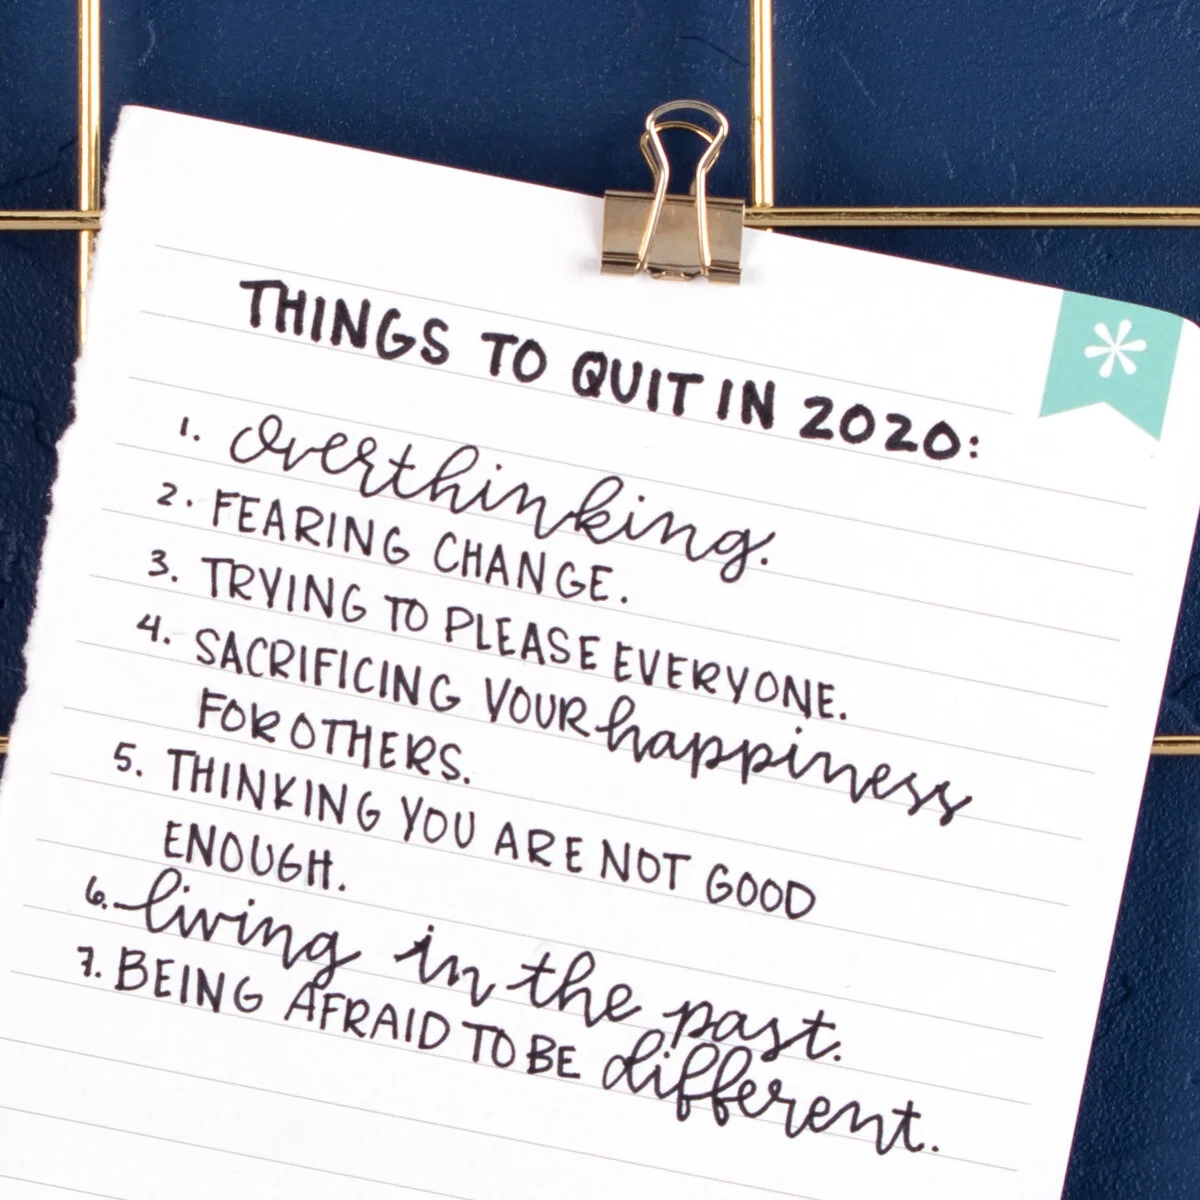 THINGS TO QUIT IN 2020:
1. overthinking.
2. FEARING CHANGE.
3. TRYING TO PLEASE EVERYONE.
4. SACRIFICING YOUR happiness
FOR OTHERS.
5. THINKING YOU ARE NOT GOOD
ENOUGH.
6. living in the past.
7. BEING AFRAID TO BE different.